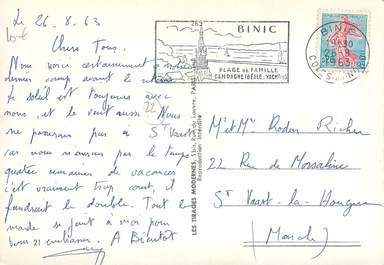 Le 26.8.63
Chers Tous.
Nous voici certainement au
dernier camp avant le retour
Le soleil est toujours avec
nous, et le vent aussi. Nous
ne passerons pas à St Vaast
car nous n'aurons pas le temps
quatre semaines de vacances
c'est vraiment trop court, il
faudrait le double. Tout le
monde se joint à moi pour
vous embrasser. A Bientôt
22
21
BINIC
PLAGE DE FAMILLE
CAMPAGNE IDÉALE, YACHTING
BINIC
19H30
26-8
CÔTES-DU-NORD
LES TIRAGES MODERNES, 5 bis, Rue du Louvre, PARIS
Reproduction interdite
Mr et Mme Rodon Richer
22 Rue de Morsalines
St Vaast-la-Hougue
(Manche)